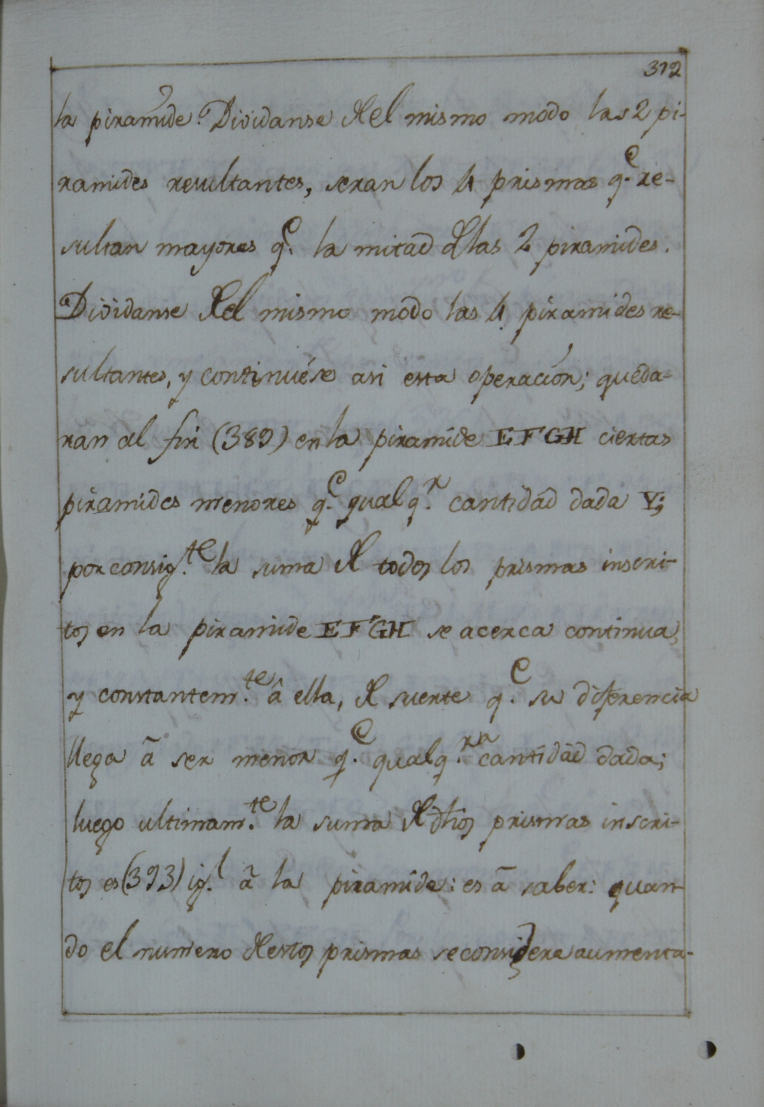 312
la piramide. Dividanse del mismo modo las 2 pi-
ramides resultantes, seran los 4 prismas q.e re-
sultan mayores q.e la mitad de las 2 piramides.
Dividanse del mismo modo las 4 piramides re-
sultantes, y continuése asi esta operación; queda-
ran al fin (389) en la piramide EFGH ciertas
piramides menores q.e qualq.r cantidad dada Y;
por consig.te la suma de todos los prismas inscri-
tos en la piramide EFGH se acerca continua,
y constantem.te â ella, de suerte q.e su diferencia
llega â ser menor q.e qualq.ra cantidad dada;
luego ultimam.te la suma de dhos prismas inscri-
tos es (393) ig.l â la piramide: es â saber: quan-
do el numero de estos prismas se considere aumenta-